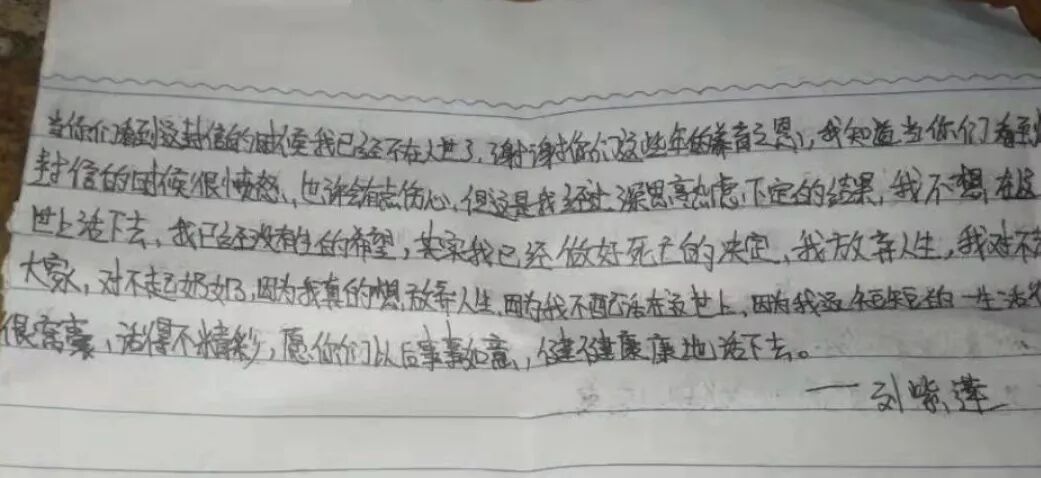 当你们看到这封信的时候我已经不在人世了,谢谢你们这些年的养育之恩,我知道当你们看到
封信的时候很愤怒,也许会有点伤心,但这是我经过深思熟虑下定的结果,我不想在这
世上活下去,我已经没有生的希望,其实我已经做好死亡的决定,我放弃人生,我对不
大家,对不起奶奶,因为我真的想放弃人生,因为我不配活在这世上,因为我这短短的一生活得
很窝囊,活得不精彩,愿你们以后事事如意,健健康康地活下去。
——刘紫莲